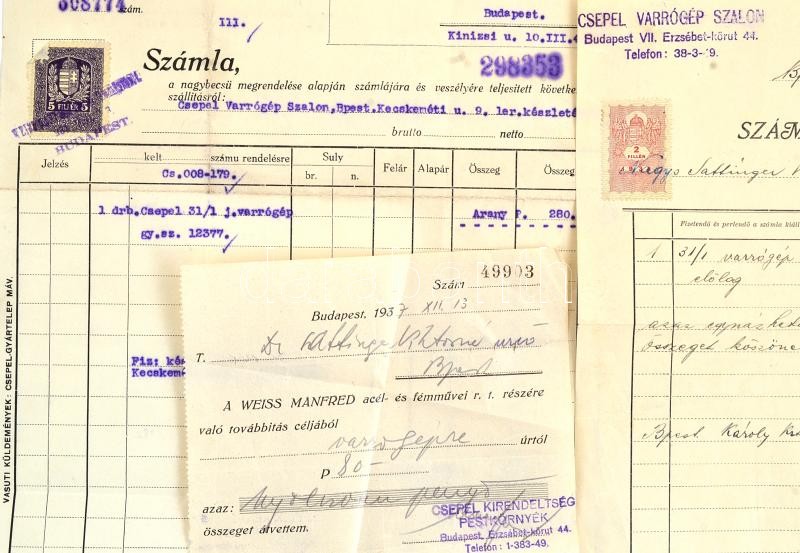 308774 szám.
III.
Budapest.
Kinizsi u. 10.III.4
Számla,
298353
a nagybecsü megrendelése alapján számlájára és veszélyére teljesitett követke
szállitásról:
Csepel Varrógép Szalon,Bpest.Kecskeméti u. 9. ler.készleté
brutto
netto
5 FILLÉR 5
BUDAPEST.
Jelzés
kelt
számu rendelésre
Suly
br.
n.
Felár
Alapár
Összeg
Össze
Cs.008-179.
1 drb.Csepel 31/1 j.varrógép
Arany P. 280.
gy.sz. 12377.
Fiz: kés
Kecskemé
VASUTI KÜLDEMÉNYEK: CSEPEL-GYÁRTELEP MÁV.
Szám 49903
Budapest, 1937 XII. 13
T. Dr
Bpest
A WEISS MANFRED acél- és fémművei r. t. részére
való továbbitás céljából
varrógépre
úrtól
P 80-
azaz: Nyolcvan pengő
összeget átvettem.
CSEPEL KIRENDELTSÉG
PESTKÖRNYÉK
Budapest, Erzsébet-körut 44.
Telefon: 1-383-49.
CSEPEL VARRÓGÉP SZALON
Budapest VII. Erzsébet-körut 44.
Telefon: 38-3-49.
2
FILLÉR
SZÁM
Sattinger
Fizetendő és perlendő a számla kiáll
1 31/1 varrógép
előlag
azaz
összeget
Bpest. Károly